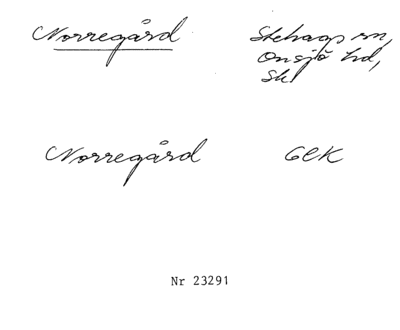 Norregård
Stehags sn,
Onsjö hd,
Sk
Norregård
GEK
Nr 23291